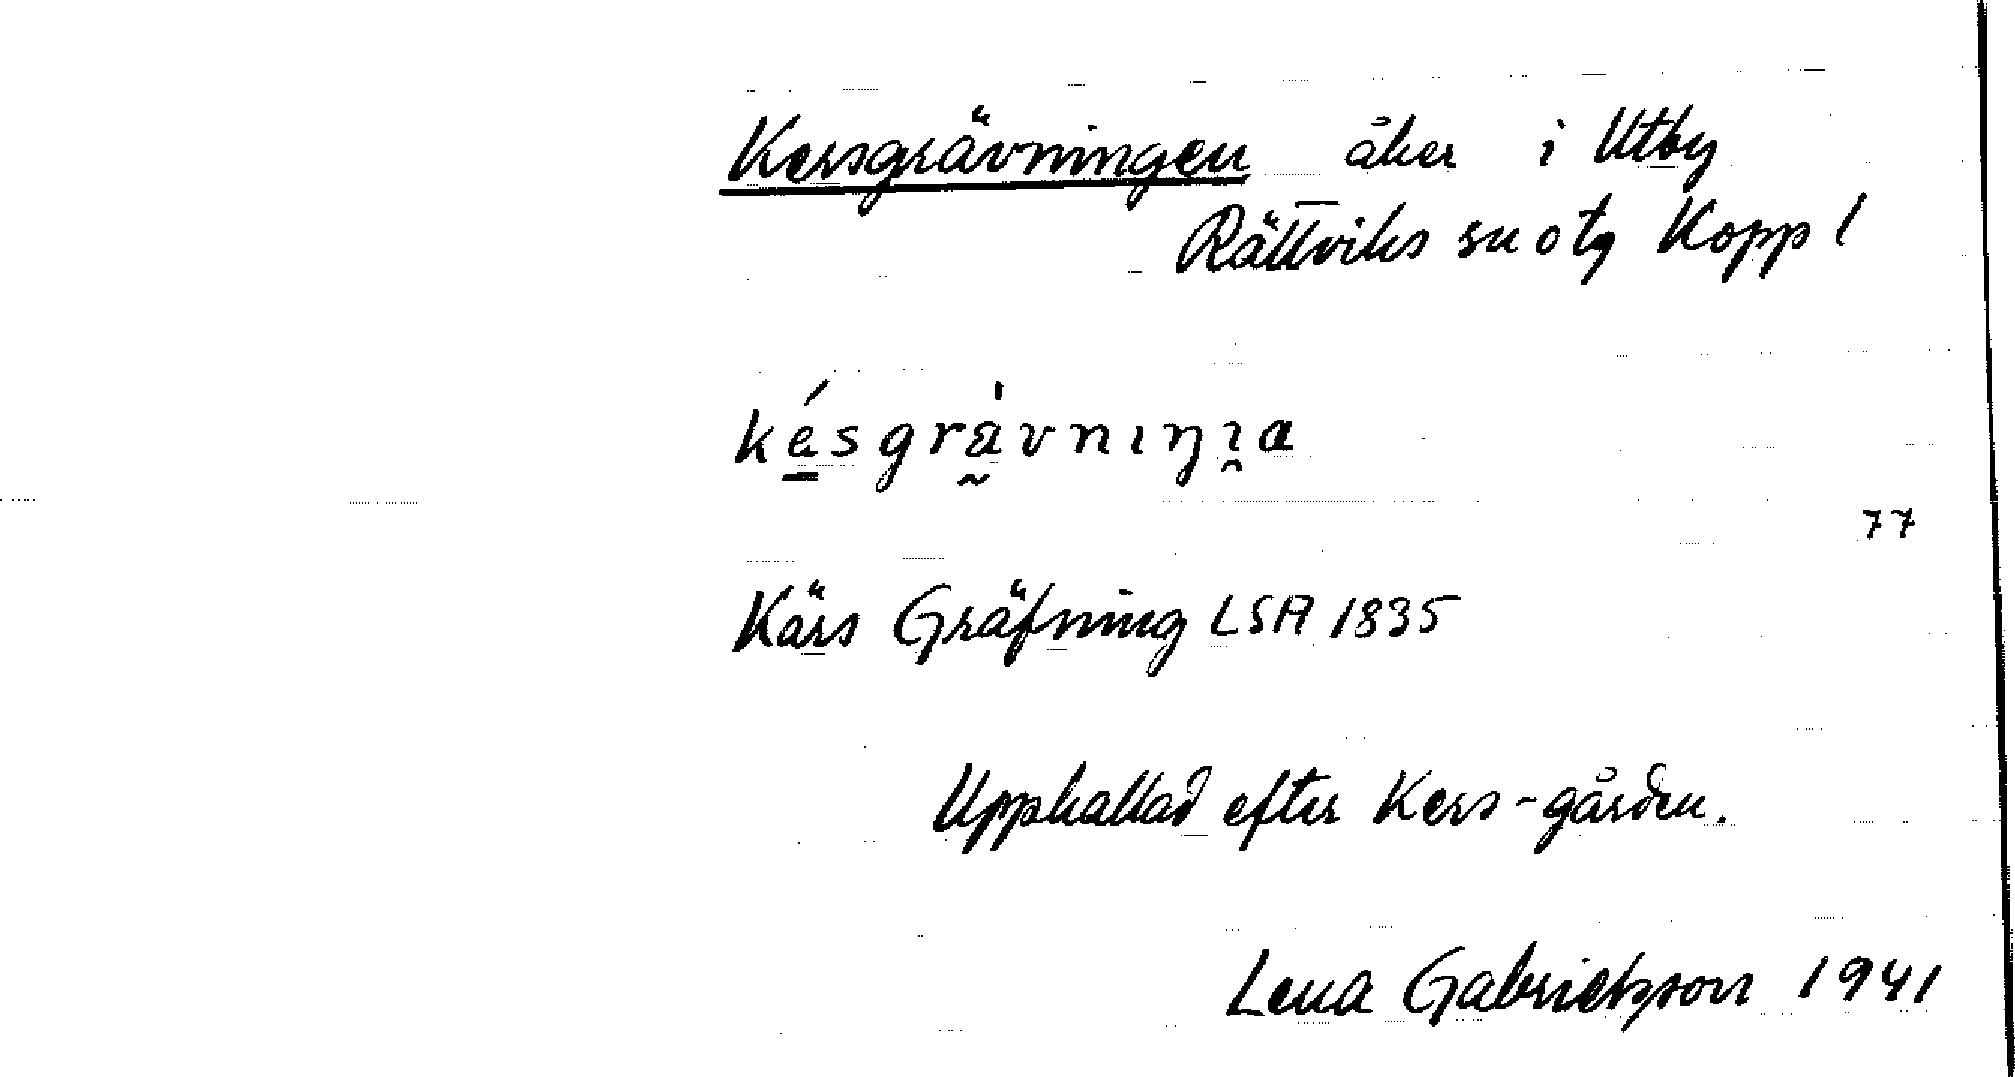 Kersgrävningen åker i Utby
Rättviks sn o tg Kopp l
késgrävnıŋı̯a
77
Kärs Gräfning LSA 1835
Uppkallad efter Kers-gården.
Lena Gabrielsson 1941